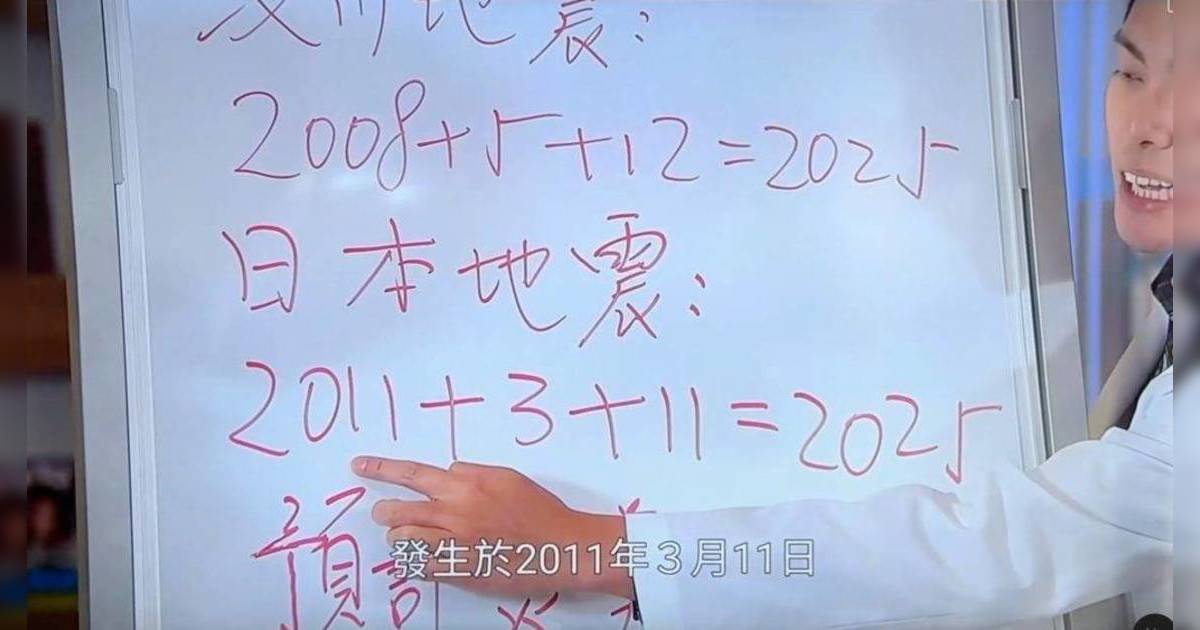 汶川地震：
2008+5+12=2025
日本地震：
2011+3+11=2025
預計
發生於2011年3月11日